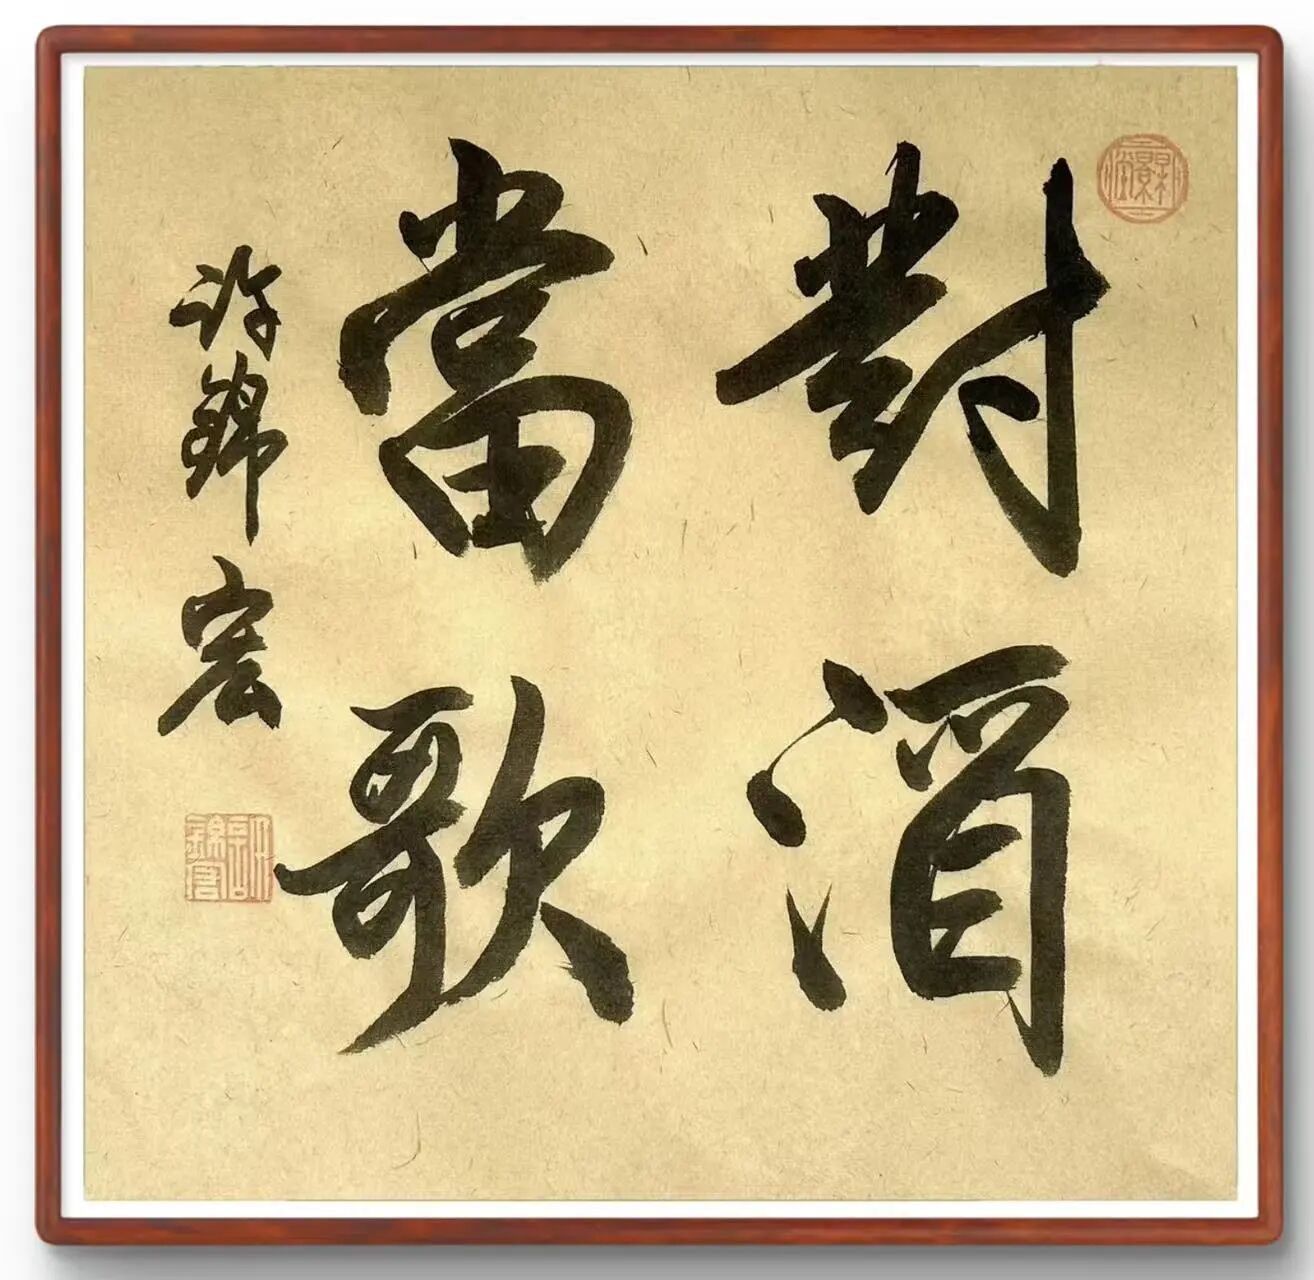 對酒
當歌
許錦宏